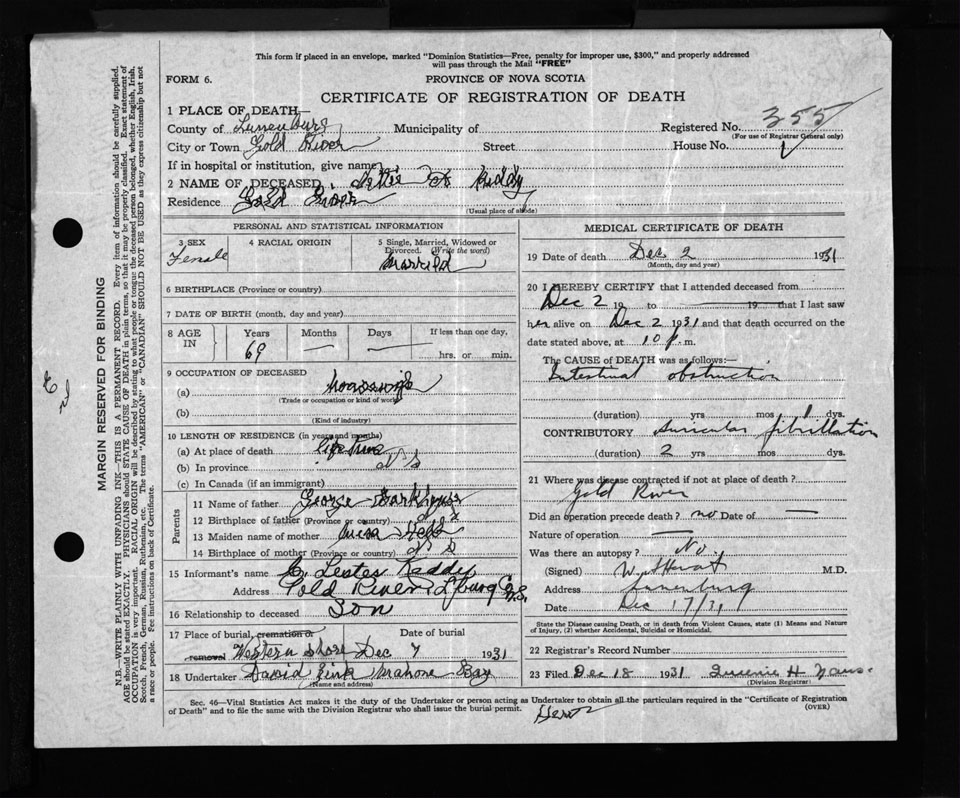 This form if placed in an envelope, marked "Dominion Statistics—Free, penalty for improper use, $300," and properly addressed
will pass through the Mail "FREE"
FORM 6.
PROVINCE OF NOVA SCOTIA
CERTIFICATE OF REGISTRATION OF DEATH
1 PLACE OF DEATH—
County of Lunenburg Municipality of Registered No. 355
(For use of Registrar General only)
City or Town Gold River Street House No.
If in hospital or institution, give name
2 NAME OF DECEASED
Residence Gold River
(Usual place of abode)
PERSONAL AND STATISTICAL INFORMATION
3 SEX
Female
4 RACIAL ORIGIN
5 Single, Married, Widowed or
Divorced. (Write the word)
Married
6 BIRTHPLACE (Province or country)
7 DATE OF BIRTH (month, day and year)
8 AGE IN
Years Months Days If less than one day,
69 — — hrs. or min.
9 OCCUPATION OF DECEASED
(a) housewife
(Trade or occupation or kind of work)
(b)
(Kind of industry)
10 LENGTH OF RESIDENCE (in years and months)
(a) At place of death life time
(b) In province N S
(c) In Canada (if an immigrant)
Parents
11 Name of father George
12 Birthplace of father (Province or country)
13 Maiden name of mother
14 Birthplace of mother (Province or country) N S
15 Informant's name Lester
Address Gold River Lburg Co N.S.
16 Relationship to deceased Son
17 Place of burial, cremation or
removal Western Shore
Date of burial
Dec 7 1931
18 Undertaker David Zink Mahone Bay
(Name and address)
MEDICAL CERTIFICATE OF DEATH
19 Date of death Dec 2 1931
(Month, day and year)
20 I HEREBY CERTIFY that I attended deceased from
Dec 2 19 to 19 that I last saw
her alive on Dec 2 1931 and that death occurred on the
date stated above, at 10 p.m.
The CAUSE OF DEATH was as follows:—
Intestinal obstruction
(duration) yrs mos 1 dys.
CONTRIBUTORY Auricular fibrillation
(duration) 2 yrs mos dys.
21 Where was disease contracted if not at place of death?
Gold River
Did an operation precede death? no Date of —
Nature of operation —
Was there an autopsy? No.
(Signed) M.D.
Address Lunenburg
Date Dec 17/31
State the Disease causing Death, or in death from Violent Causes, state (1) Means and Nature
of Injury, (2) whether Accidental, Suicidal or Homicidal.
22 Registrar's Record Number
23 Filed Dec 18 1931
(Division Registrar)
Sec. 46—Vital Statistics Act makes it the duty of the Undertaker or person acting as Undertaker to obtain all the particulars required in the "Certificate of Registration
of Death" and to file the same with the Division Registrar who shall issue the burial permit.
(OVER)
MARGIN RESERVED FOR BINDING
N.B.—WRITE PLAINLY WITH UNFADING INK—THIS IS A PERMANENT RECORD. Every item of information should be carefully supplied.
AGE should be stated EXACTLY. PHYSICIANS should STATE CAUSE OF DEATH in plain terms, so that it may be properly classified. Exact statement of
OCCUPATION is very important. RACIAL ORIGIN will be described by stating to what people or tongue the deceased person belonged, whether English, Irish,
Scotch, French, German, Russian, Ruthenian, etc. The terms "AMERICAN" or "CANADIAN" SHOULD NOT BE USED as they express citizenship but not
a race or people. See instructions on back of Certificate.